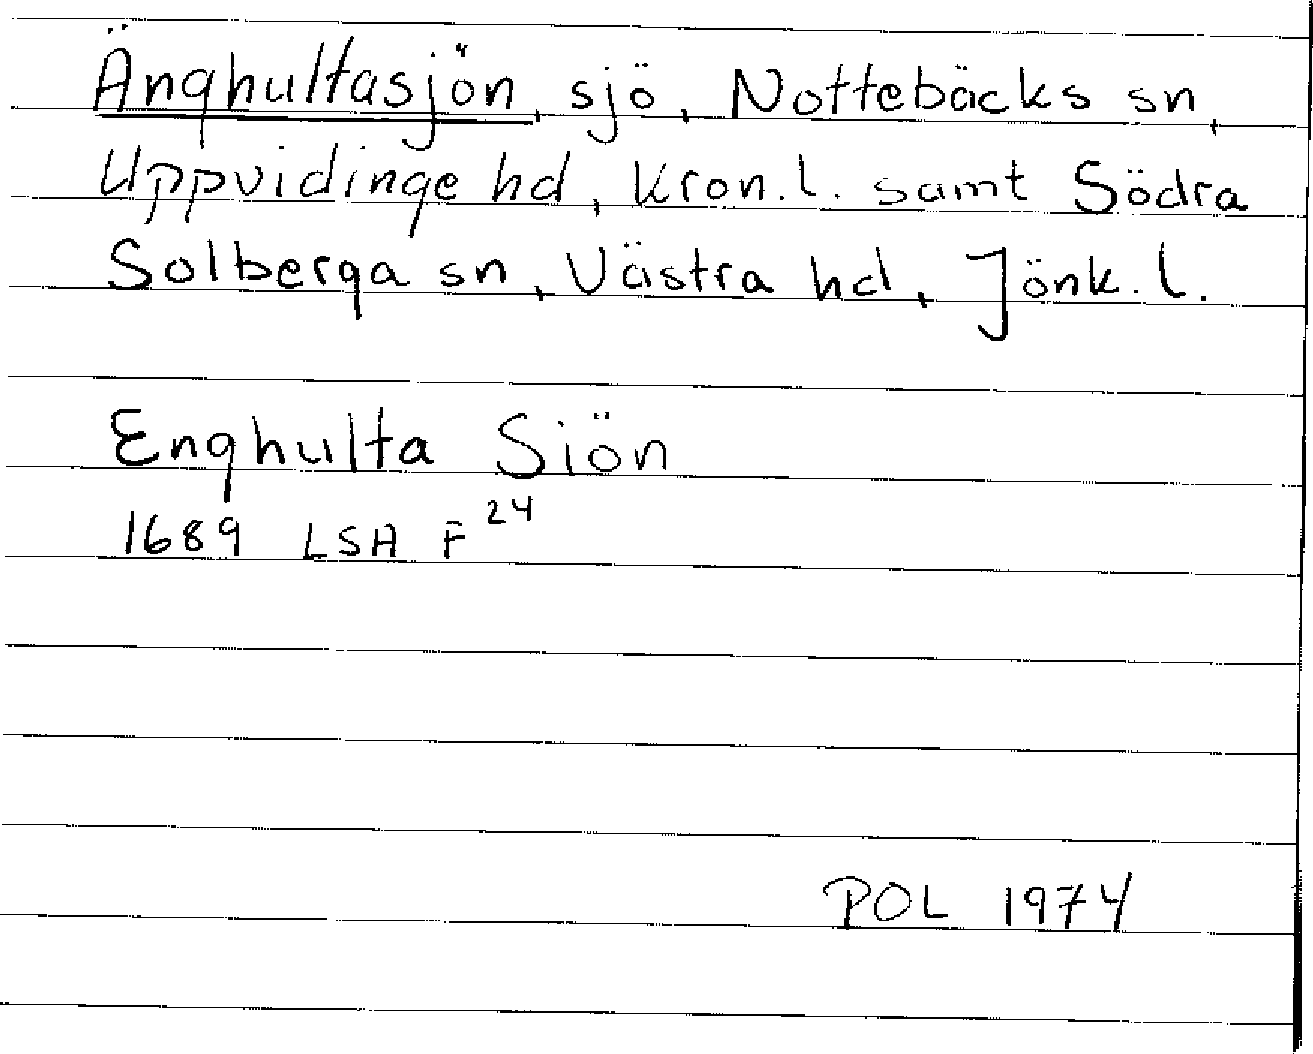 Änghultasjön, sjö, Nottebäcks sn,
Uppvidinge hd, Kron. l. samt Södra
Solberga sn, Västra hd, Jönk. l.
Enghulta Siön
1689 LSA F 24
POL 1974